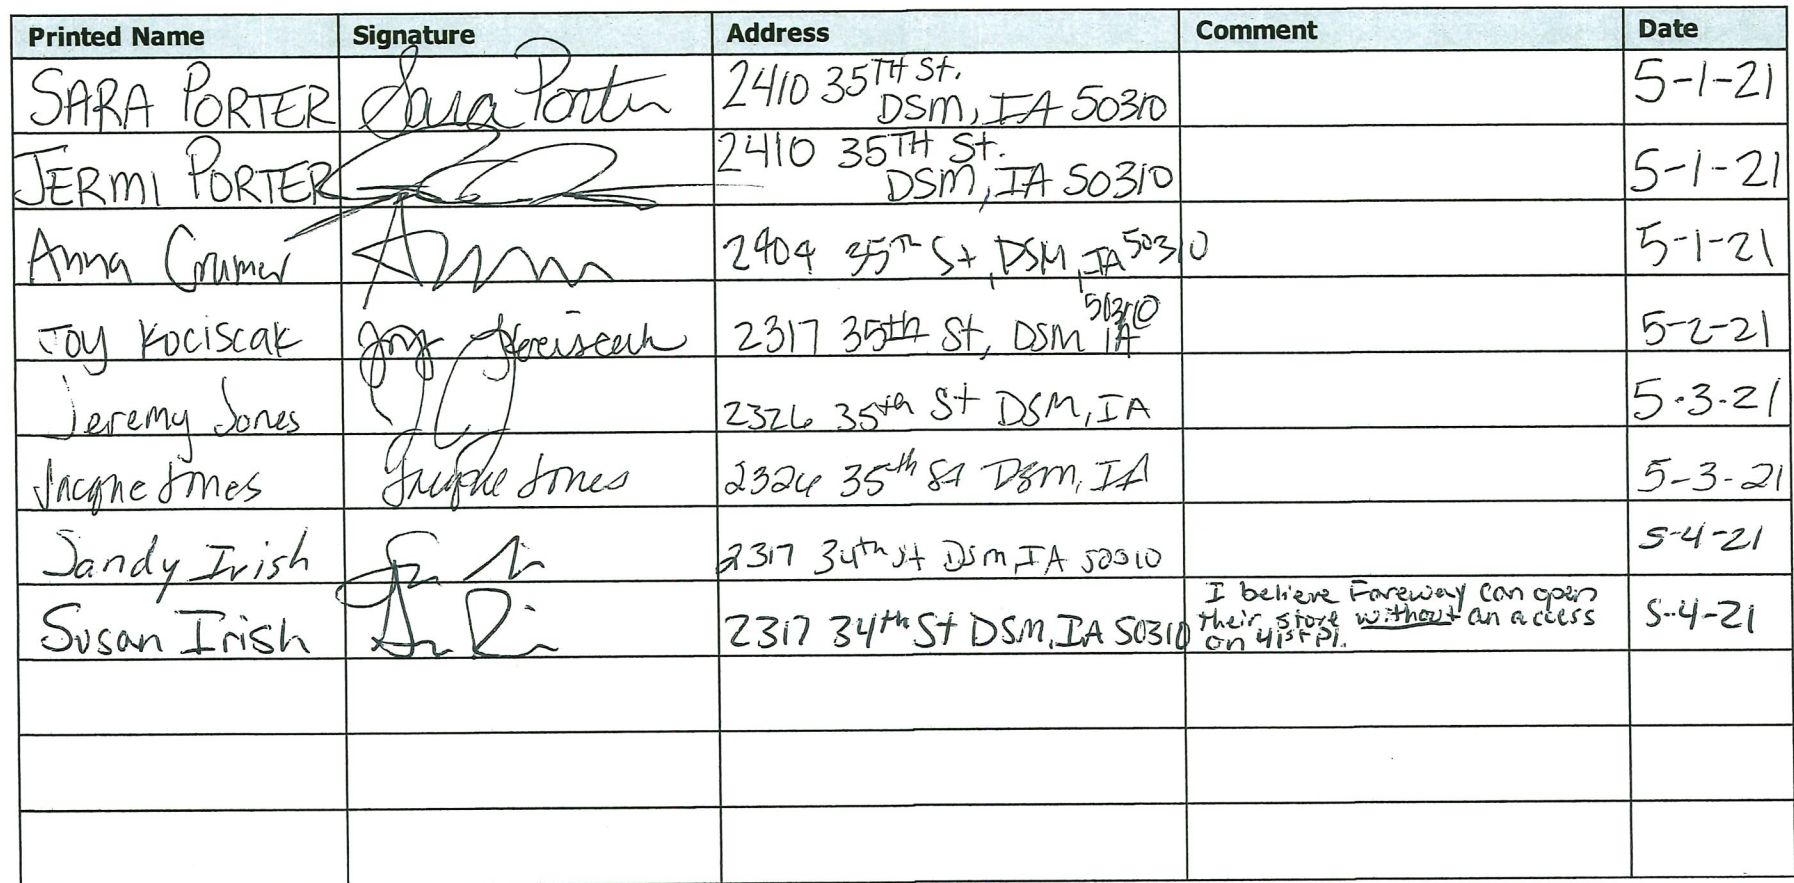 Printed Name Signature Address Comment Date
SARA PORTER Sara Porter 2410 35TH St. 5-1-21
DSM, IA 50310
JERMI PORTER 2410 35TH St. 5-1-21
DSM, IA 50310
Anna Crumer 2404 35TH St, DSM, IA 50310 5-1-21
Joy Kociscak Joy Kociscak 2317 35th St, DSM IA 50310 5-2-21
Jeremy Jones JJ 2326 35th St DSM, IA 5.3.21
Jacque Jones Jacque Jones 2326 35th St DSM, IA 5-3-21
Sandy Irish 2317 34th st Dsm, IA 50310 5-4-21
Susan Irish 2317 34th St DSM, IA 50310 I believe Fareway can open 5-4-21
their store without an access
on 41st Pl.